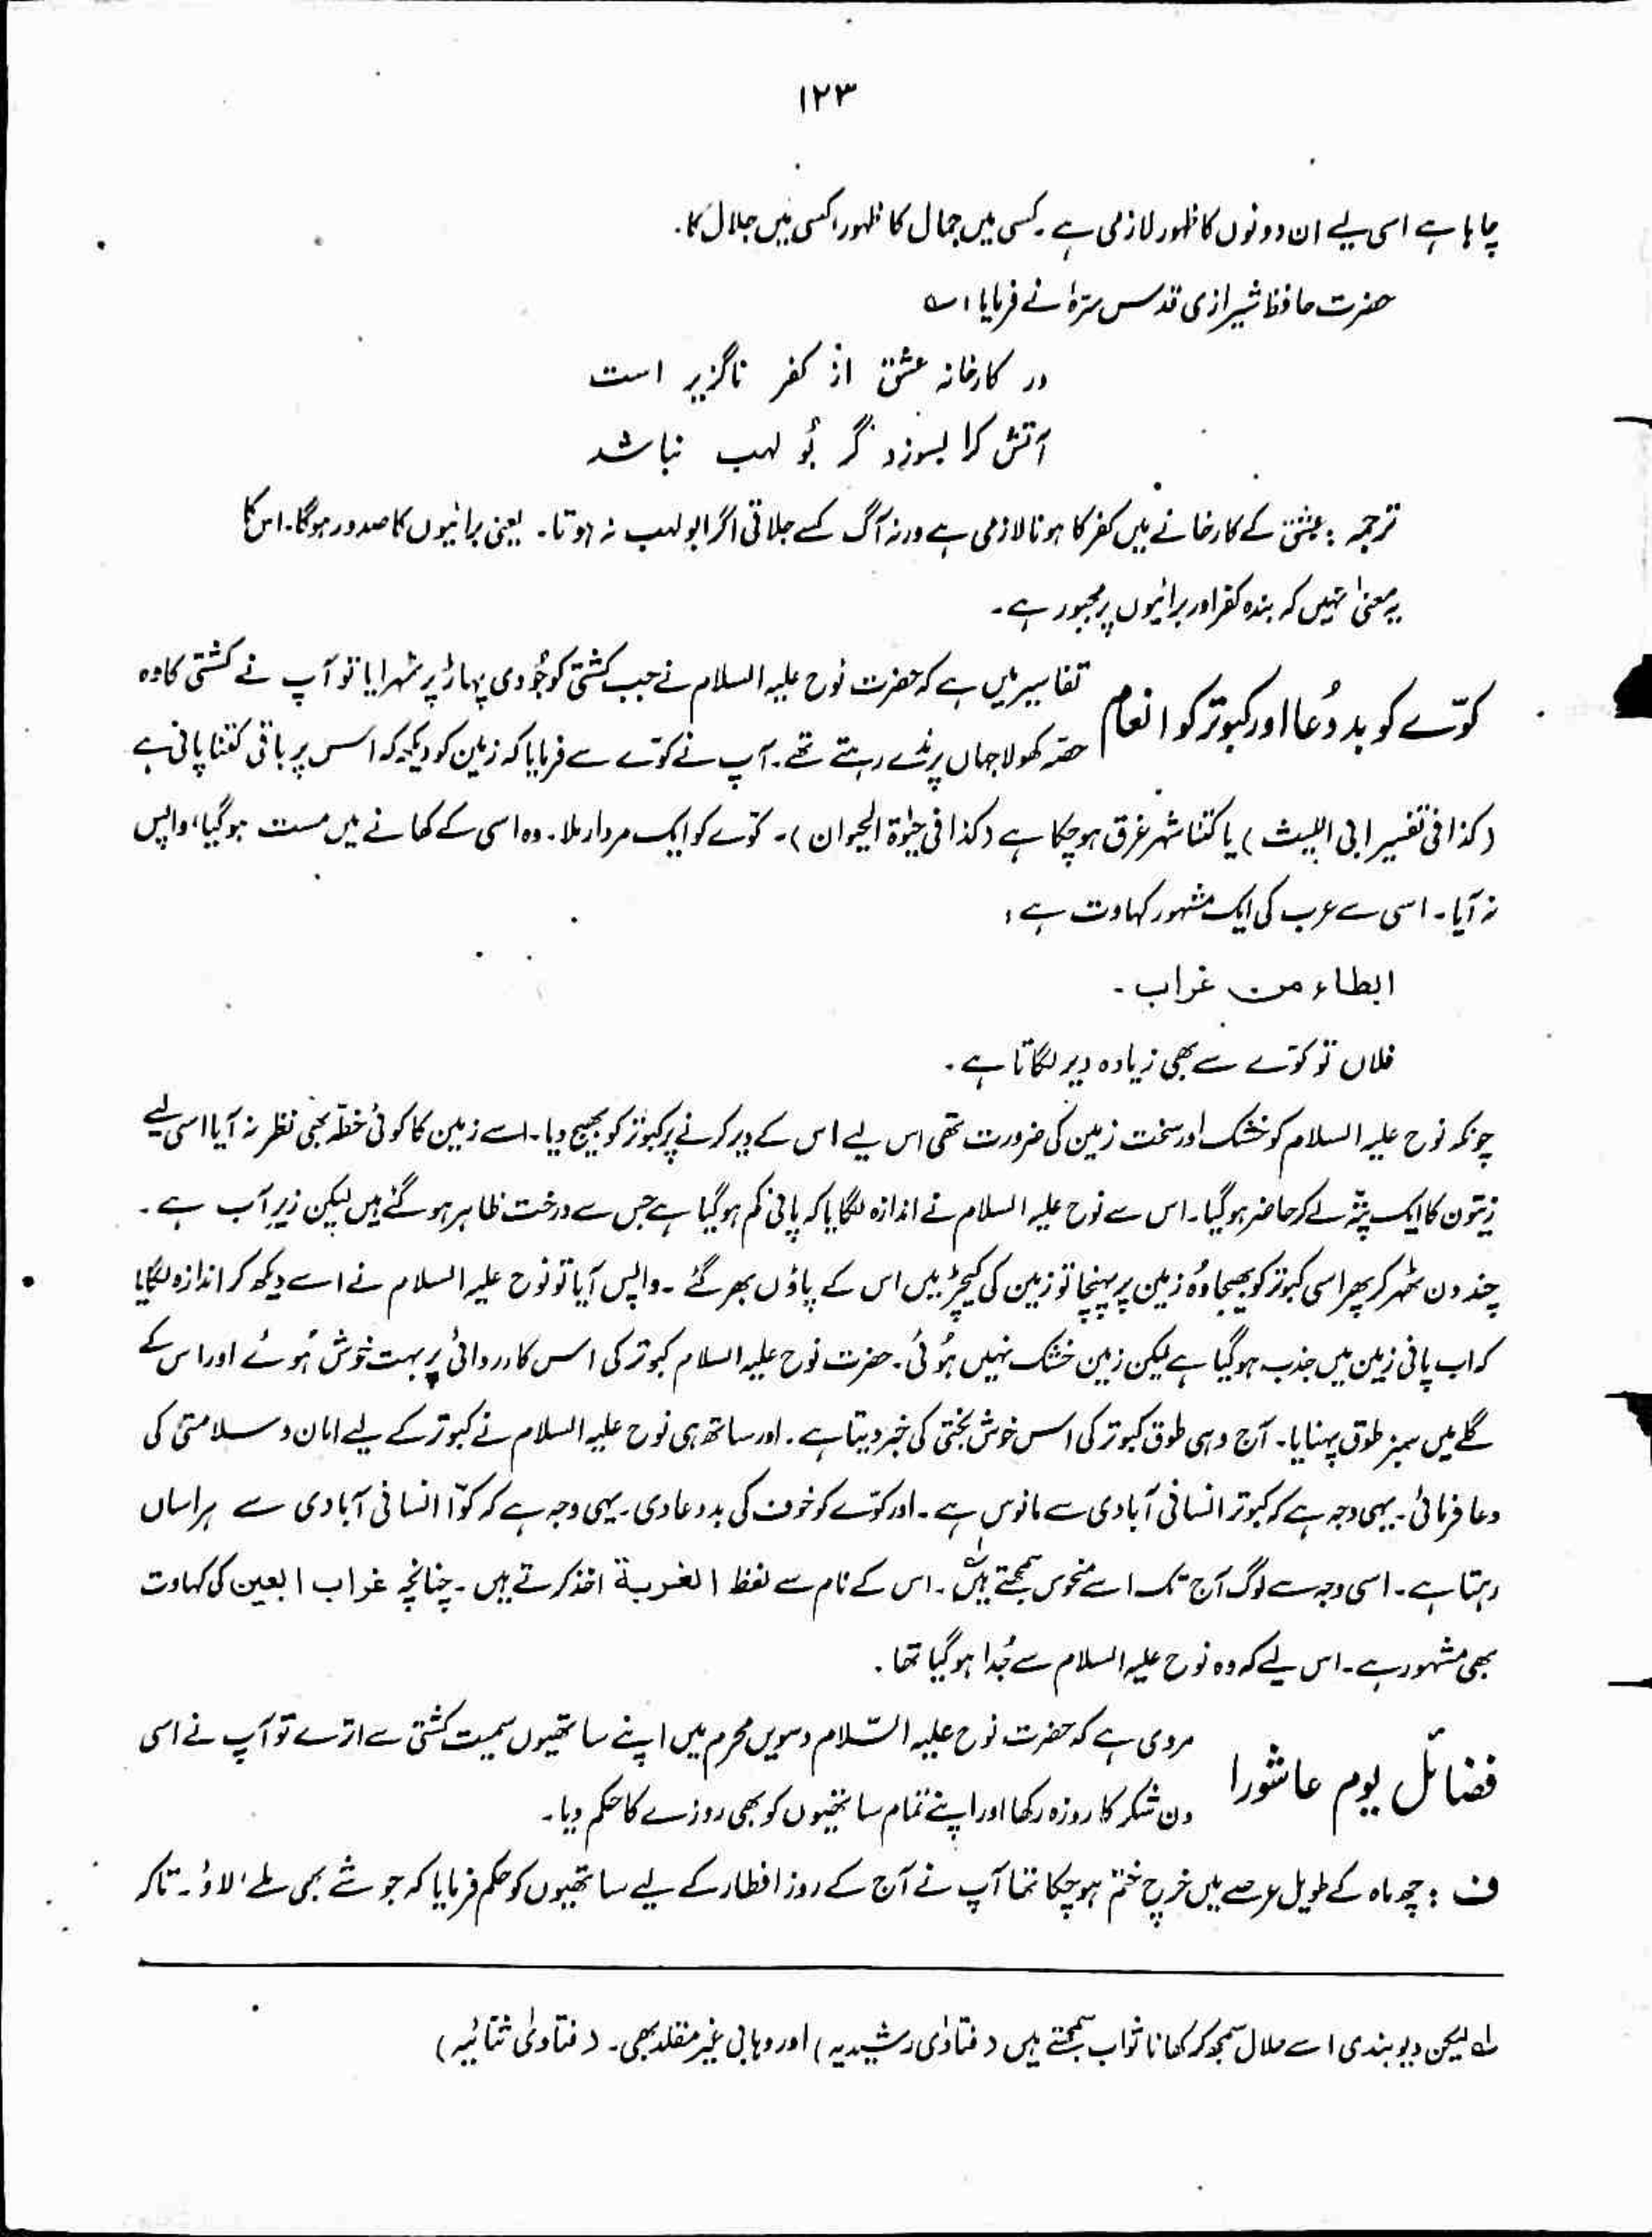 ۱۲۳
چاہا ہے اسی لیے ان دونوں کا ظہور لازمی ہے۔ کسی میں جمال کا ظہور، کسی میں جلال کا۔
حضرت حافظ شیرازی قدس سرہٗ نے فرمایا ؎
در کارخانہ عشق از کفر ناگزیر است
آتش کرا بسوزد گر بُو لہب نباشد
ترجمہ : عشق کے کارخانے میں کفر کا ہونا لازمی ہے ورنہ آگ کسے جلاتی اگر ابولہب نہ ہوتا۔ یعنی برائیوں کا صدور ہوگا۔ اس کا
یہ معنیٰ نہیں کہ بندہ کفر اور برائیوں پر مجبور ہے۔
کوّے کو بد دُعا اور کبوتر کو انعام
تفاسیر میں ہے کہ حضرت نوح علیہ السلام نے جب کشتی کو جُودی پہاڑ پر ٹھہرایا تو آپ نے کشتی کا وہ
حصّہ کھولا جہاں پرندے رہتے تھے۔ آپ نے کوّے سے فرمایا کہ زمین کو دیکھ کہ اس پر باقی کتنا پانی ہے
(کذا فی تفسیر ابی اللیث) یا کتنا شہر غرق ہوچکا ہے (کذا فی حیٰوۃ الحیوان)۔ کوّے کو ایک مردار ملا۔ وہ اسی کے کھانے میں مست ہوگیا، واپس
نہ آیا۔ اسی سے عرب کی ایک مشہور کہاوت ہے :
ابطاء من غراب ۔
فلاں تو کوّے سے بھی زیادہ دیر لگاتا ہے۔
چونکہ نوح علیہ السلام کو خشک اور سخت زمین کی ضرورت تھی اس لیے اس کے دیر کرنے پر کبوتر کو بھیج دیا۔ اسے زمین کا کوئی خطّہ بھی نظر نہ آیا اسی لیے
زیتون کا ایک پتّہ لے کر حاضر ہوگیا۔ اس سے نوح علیہ السلام نے اندازہ لگایا کہ پانی کم ہوگیا ہے جس سے درخت ظاہر ہو گئے ہیں لیکن زیر آب ہے۔
چند دن ٹھہر کر پھر اسی کبوتر کو بھیجا وُہ زمین پر پہنچا تو زمین کی کیچڑ میں اس کے پاؤں بھر گئے۔ واپس آیا تو نوح علیہ السلام نے اسے دیکھ کر اندازہ لگایا
کہ اب پانی زمین میں جذب ہوگیا ہے لیکن زمین خشک نہیں ہُوئی۔ حضرت نوح علیہ السلام کبوتر کی اس کارروائی پر بہت خوش ہُوئے اور اس کے
گلے میں سبز طوق پہنایا۔ آج وہی طوق کبوتر کی اس خوش بختی کی خبر دیتا ہے۔ اور ساتھ ہی نوح علیہ السلام نے کبوتر کے لیے امان و سلامتی کی
دعا فرمائی۔ یہی وجہ ہے کہ کبوتر انسانی آبادی سے مانوس ہے۔ اور کوّے کو خوف کی بد دعا دی۔ یہی وجہ ہے کہ کوّا انسانی آبادی سے ہراساں
رہتا ہے۔ اسی وجہ سے لوگ آج تک اسے منحوس سمجھتے ہیں لہ۔ اس کے نام سے لفظ الغربۃ اخذ کرتے ہیں۔ چنانچہ غراب البین کی کہاوت
بھی مشہور ہے۔ اس لیے کہ وہ نوح علیہ السلام سے جُدا ہوگیا تھا۔
فضائل یوم عاشورا
مروی ہے کہ حضرت نوح علیہ السّلام دسویں محرم میں اپنے ساتھیوں سمیت کشتی سے اترے تو آپ نے اسی
دن شکر کا روزہ رکھا اور اپنے تمام ساتھیوں کو بھی روزے کا حکم دیا۔
ف : چھ ماہ کے طویل عرصے میں خرچ ختم ہوچکا تھا آپ نے آج کے روز افطار کے لیے ساتھیوں کو حکم فرمایا کہ جو شے بھی ملے، لاؤ۔ تاکہ
لہ لیکن دیوبندی اسے حلال سمجھ کر کھانا ثواب سمجھتے ہیں (فتاوٰی رشیدیہ) اور وہابی غیر مقلد بھی۔ (فتاویٰ ثنائیہ)